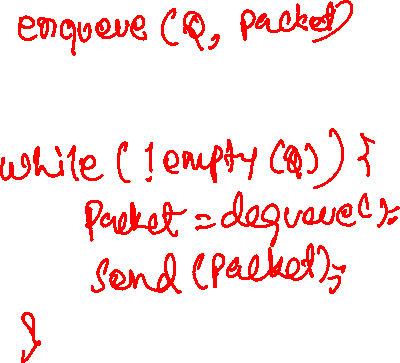 enqueue (Q, packet)
while ( ! empty (Q) ) {
Packet = dequeue();
Send (Packet);
}